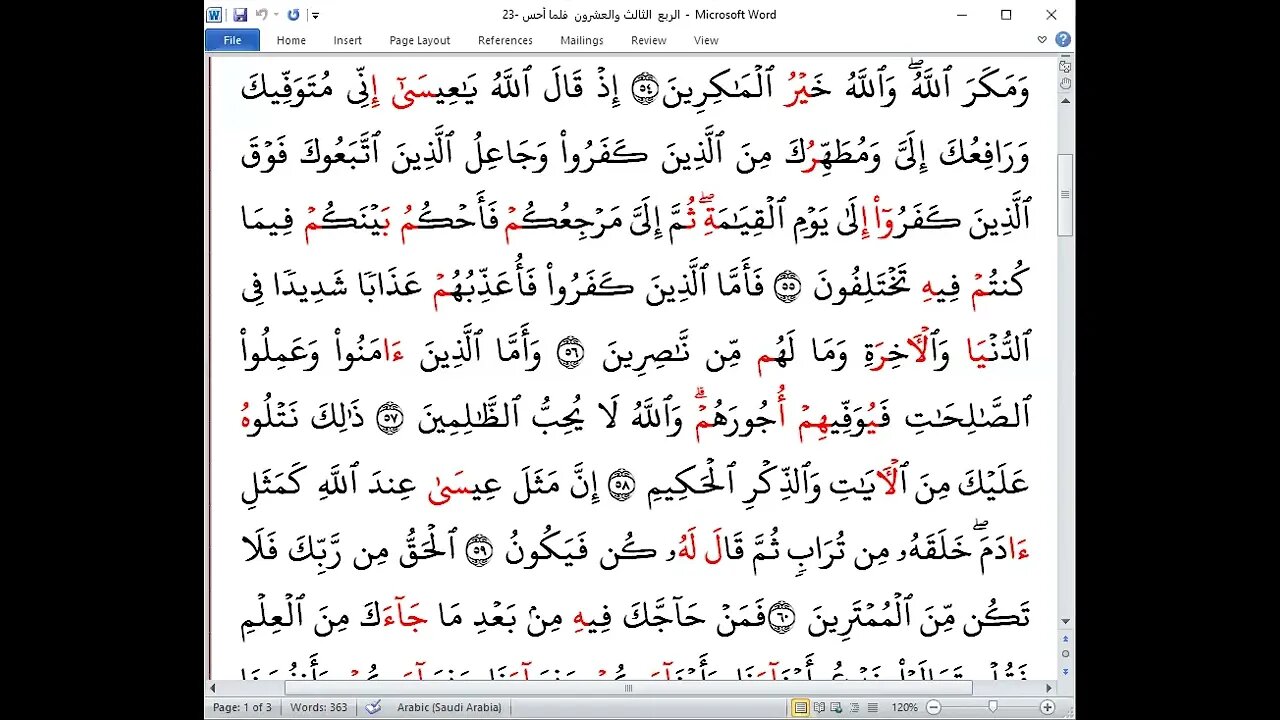 الربع الثالث والعشرون فلما أحس -23 - Microsoft Word
File Home Insert Page Layout References Mailings Review View
وَمَكَرَ ٱللَّهُۖ وَٱللَّهُ خَيۡرُ ٱلۡمَـٰكِرِينَ ٥٤ إِذۡ قَالَ ٱللَّهُ يَـٰعِيسَىٰٓ إِنِّي مُتَوَفِّيكَ
وَرَافِعُكَ إِلَيَّ وَمُطَهِّرُكَ مِنَ ٱلَّذِينَ كَفَرُواْ وَجَاعِلُ ٱلَّذِينَ ٱتَّبَعُوكَ فَوۡقَ
ٱلَّذِينَ كَفَرُوٓاْ إِلَىٰ يَوۡمِ ٱلۡقِيَـٰمَةِۖ ثُمَّ إِلَيَّ مَرۡجِعُكُمۡ فَأَحۡكُمُ بَيۡنَكُمۡ فِيمَا
كُنتُمۡ فِيهِ تَخۡتَلِفُونَ ٥٥ فَأَمَّا ٱلَّذِينَ كَفَرُواْ فَأُعَذِّبُهُمۡ عَذَابٗا شَدِيدٗا فِي
ٱلدُّنۡيَا وَٱلۡأٓخِرَةِ وَمَا لَهُم مِّن نَّـٰصِرِينَ ٥٦ وَأَمَّا ٱلَّذِينَ ءَامَنُواْ وَعَمِلُواْ
ٱلصَّـٰلِحَـٰتِ فَيُوَفِّيهِمۡ أُجُورَهُمۡۗ وَٱللَّهُ لَا يُحِبُّ ٱلظَّـٰلِمِينَ ٥٧ ذَٰلِكَ نَتۡلُوهُ
عَلَيۡكَ مِنَ ٱلۡأٓيَـٰتِ وَٱلذِّكۡرِ ٱلۡحَكِيمِ ٥٨ إِنَّ مَثَلَ عِيسَىٰ عِندَ ٱللَّهِ كَمَثَلِ
ءَادَمَۖ خَلَقَهُۥ مِن تُرَابٖ ثُمَّ قَالَ لَهُۥ كُن فَيَكُونُ ٥٩ ٱلۡحَقُّ مِن رَّبِّكَ فَلَا
تَكُن مِّنَ ٱلۡمُمۡتَرِينَ ٦٠ فَمَنۡ حَآجَّكَ فِيهِ مِنۢ بَعۡدِ مَا جَآءَكَ مِنَ ٱلۡعِلۡمِ
Page: 1 of 3 Words: 363 Arabic (Saudi Arabia) 120%